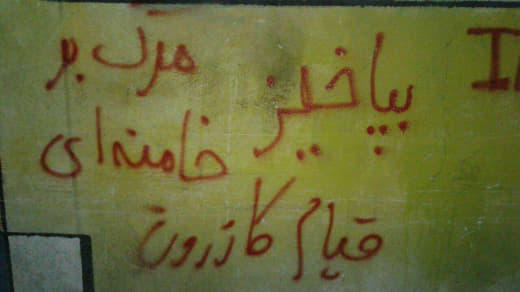 بپاخیز
مرگ بر
خامنه ای
قیام کازرون